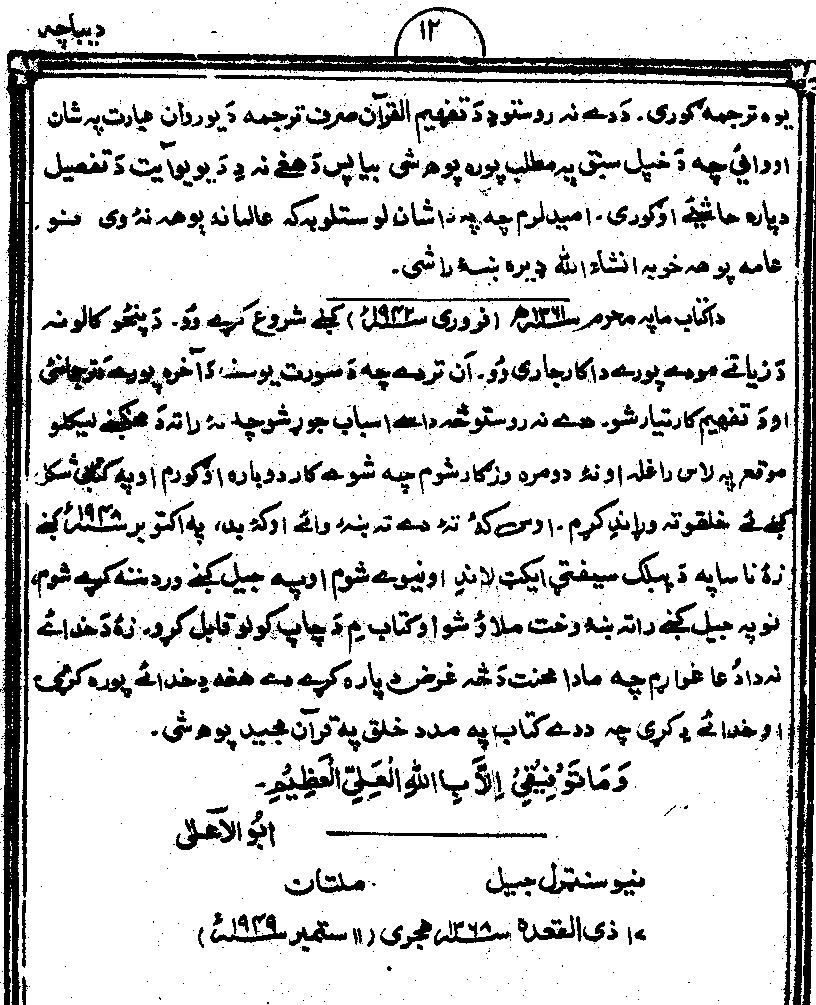 دیباچہ
۱۲
یوہ ترجمہ گوری۔ ددے نہ روستو د تفہیم القرآن صرف ترجمہ د یو روان عبارت پہ شان
اوداقي چہ د خپل سبق پہ مطلب پورہ پوہ شی بیا پس دھغے نہ د د یو یو آیت د تفصیل
دپارہ حاشیئے اوگوری۔ امید لرم چہ پہ دا شان لوستلو بہ کہ عالمانہ پوهہ نہ وی نو
عامہ پوهہ خو بہ انشاء اللہ ډیرہ بنہ راشی۔
داکتاب ما پہ محرم ۱۳۶۱ھ (فروری ۱۹۴۲ء) کنے شروع کړے وو۔ د پنځو کالو نہ
د زیاتے مودے پورے دا کار جاری وو۔ ان تردے چہ د سورت یوسف د آخرہ پورے ترجمانی
او د تفہیم کار تیار شو۔ دے نہ روستو څہ داسے اسباب جوړ شو چہ نہ راتہ د کنے لیکلو
موقعہ پہ لاس راغلہ او نہ دومرہ وزگار شوم چہ شوے کار دوبارہ اوگورم او پہ کتابی شکل
کنے ئے خلقو تہ وړاندِ کړم۔ اوس کہ تہ دے تہ بنہ وائے او کہ بد، پہ اکتوبر ۱۹۴۸ء کنے
زہ ناساپہ د پبلک سیفتی ایکټ لاندِ اونیوے شوم او پہ جیل کنے ورد ننہ کړے شوم
نو پہ جیل کنے راتہ بنہ وخت ملاؤ شو او کتاب مِ د چاپ کولو قابل کړو۔ زہ د خدائے
نہ دا دُعا غواړم چہ ما دا محنت د څہ غرض دپارہ کړے دے ھغہ دِ خدائے پورہ کړی،
او خدائے دِ کړی چہ ددے کتاب پہ مدد خلق پہ قرآن مجید پوہ شی۔
وَمَا تَوْفِیْقِیْ اِلَّا بِاللّٰہِ الْعَلِیِّ الْعَظِیْمِ۔
ابُو الاَعلٰی
نیو سنټرل جیل ملتان
۱۷ ذی القعدہ ۱۳۶۸ ھجری (۱۱ ستمبر ۱۹۴۹ء)